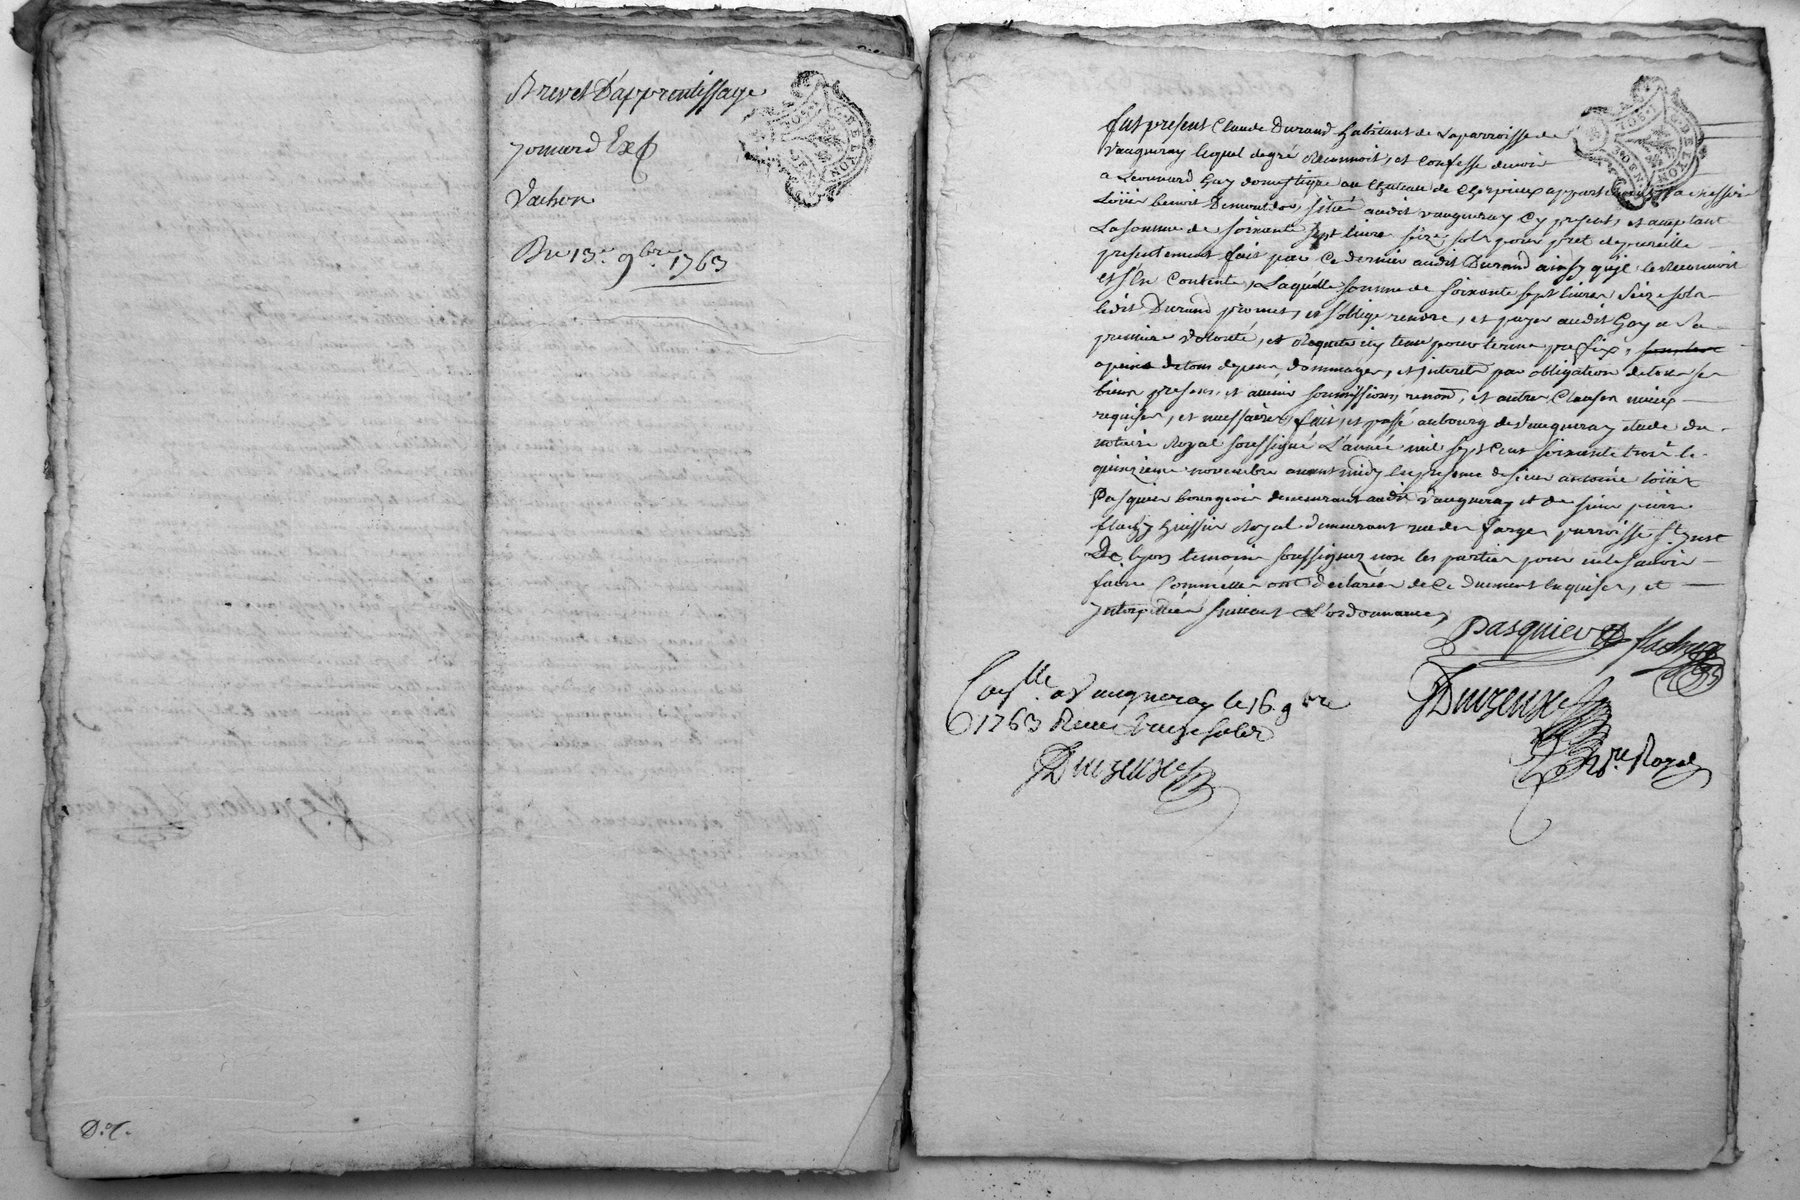 Brevet D'apprentissage
Jomard Ex
Vachon
Du 13e 9bre 1763
D.
fut present Claude Durand habitant de la parroisse de
Vaugneray lequel de gré reconnoit, et confesse devoir
a Leonnard Gay domestique au Chateau de appartenant a Messire
Loüis benoit Demontdor, sitüé audit vaugneray cy present, et acceptant
La somme de soixante sept livres seize sols pour pret de pareille
presentement fait par ce dernier audit Durand ainsy qu'il le reconnoit
et s'en contente, Laquelle somme de soixante sept livres seize sols
ledit Durand promet, et s'oblige rendre, et payer audit Gay a sa
premiere volonté, et requete icy tenu pour terme prefix,
a peine de tous depens, dommages, et interets par obligation de tous ses
biens presens, et avenir soumissions, renon, et autres Clauses mieux
requises, et necessaires, fait, et passé au bourg de Vaugneray etude du
notaire Royal soussigné L'année mil sept cent soixante trois le
quinzieme novembre avant midy en presence de sieur antoine loüis
Pasquier bourgeois demeurant audit Vaugneray et de sieur pierre
flachy huissier Royal demeurant rue des farges parroisse st just
De lyon temoins soussignez non les parties pour ne le savoir
faire Comm'elles ont declarées de ce duement enquises, et
interpellées suivant L'ordonnance,
Pasquier flachy
Duizeux
Nre Royal
Conlle a Vaugneray le 16 9bre
1763 Receu treize sols
Duizeux